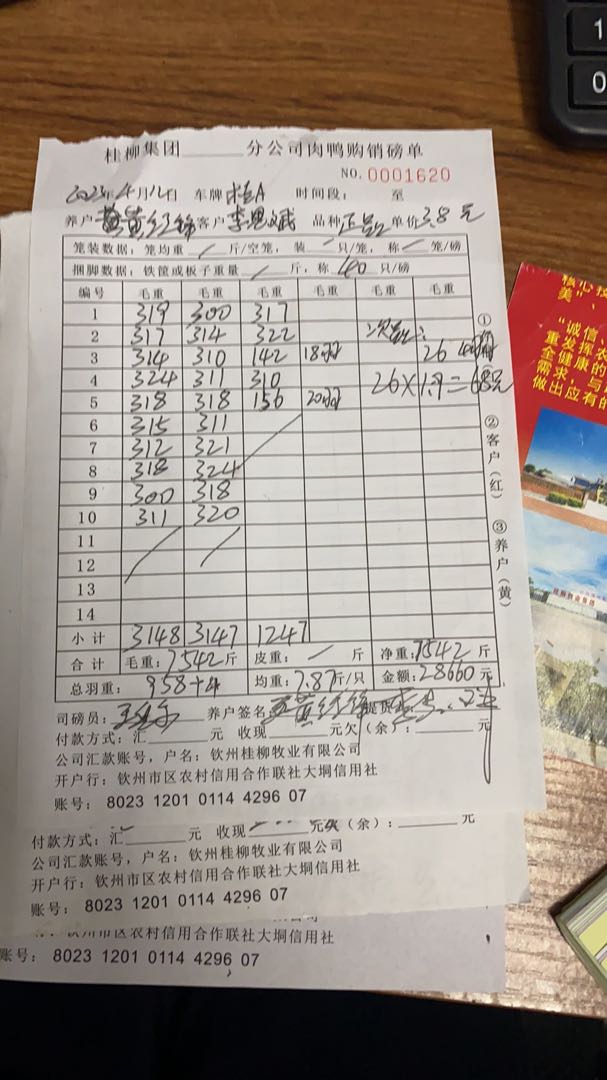 桂柳集团______分公司肉鸭购销磅单
NO. 0001620
2023年4月12日 车牌 桂A 时间段: 至
养户 黄 客户 李 品种 正品 单价 3.8 元
笼装数据: 笼均重 / 斤/空笼, 装 / 只/笼, 称 / 笼/磅
捆脚数据: 铁筐或板子重量 / 斤, 称 40 只/磅
编号 毛重 毛重 毛重 毛重 毛重 毛重
1 319 300 317
2 317 314 322 次品:
3 314 310 142 18 26
4 324 311 310 26×
5 318 318 156 20
6 315 311
7 312 321
8 318 324
9 300 318
10 311 320
11
12
13
14
小计 3148 3147 1247
合计 毛重: 7542 斤 皮重: / 斤 净重: 7542 斤
总羽重: 958+4 均重: 7.87 斤/只 金额: 28660 元
司磅员: 养户签名: 黄 提供
付款方式: 汇______元 收现______元欠(余):______元
公司汇款账号, 户名: 钦州桂柳牧业有限公司
开户行: 钦州市区农村信用合作联社大垌信用社
账号: 8023 1201 0114 4296 07
① ② 客户(红) ③ 养户(黄)
付款方式: 汇______元 收现______元欠(余):______元
公司汇款账号, 户名: 钦州桂柳牧业有限公司
开户行: 钦州市区农村信用合作联社大垌信用社
账号: 8023 1201 0114 4296 07
钦州市区农村信用合作联社大垌信用社
账号: 8023 1201 0114 4296 07
核心技
美"、
"诚信、
重发挥农
全健康的
需求,与
做出应有的
1
0